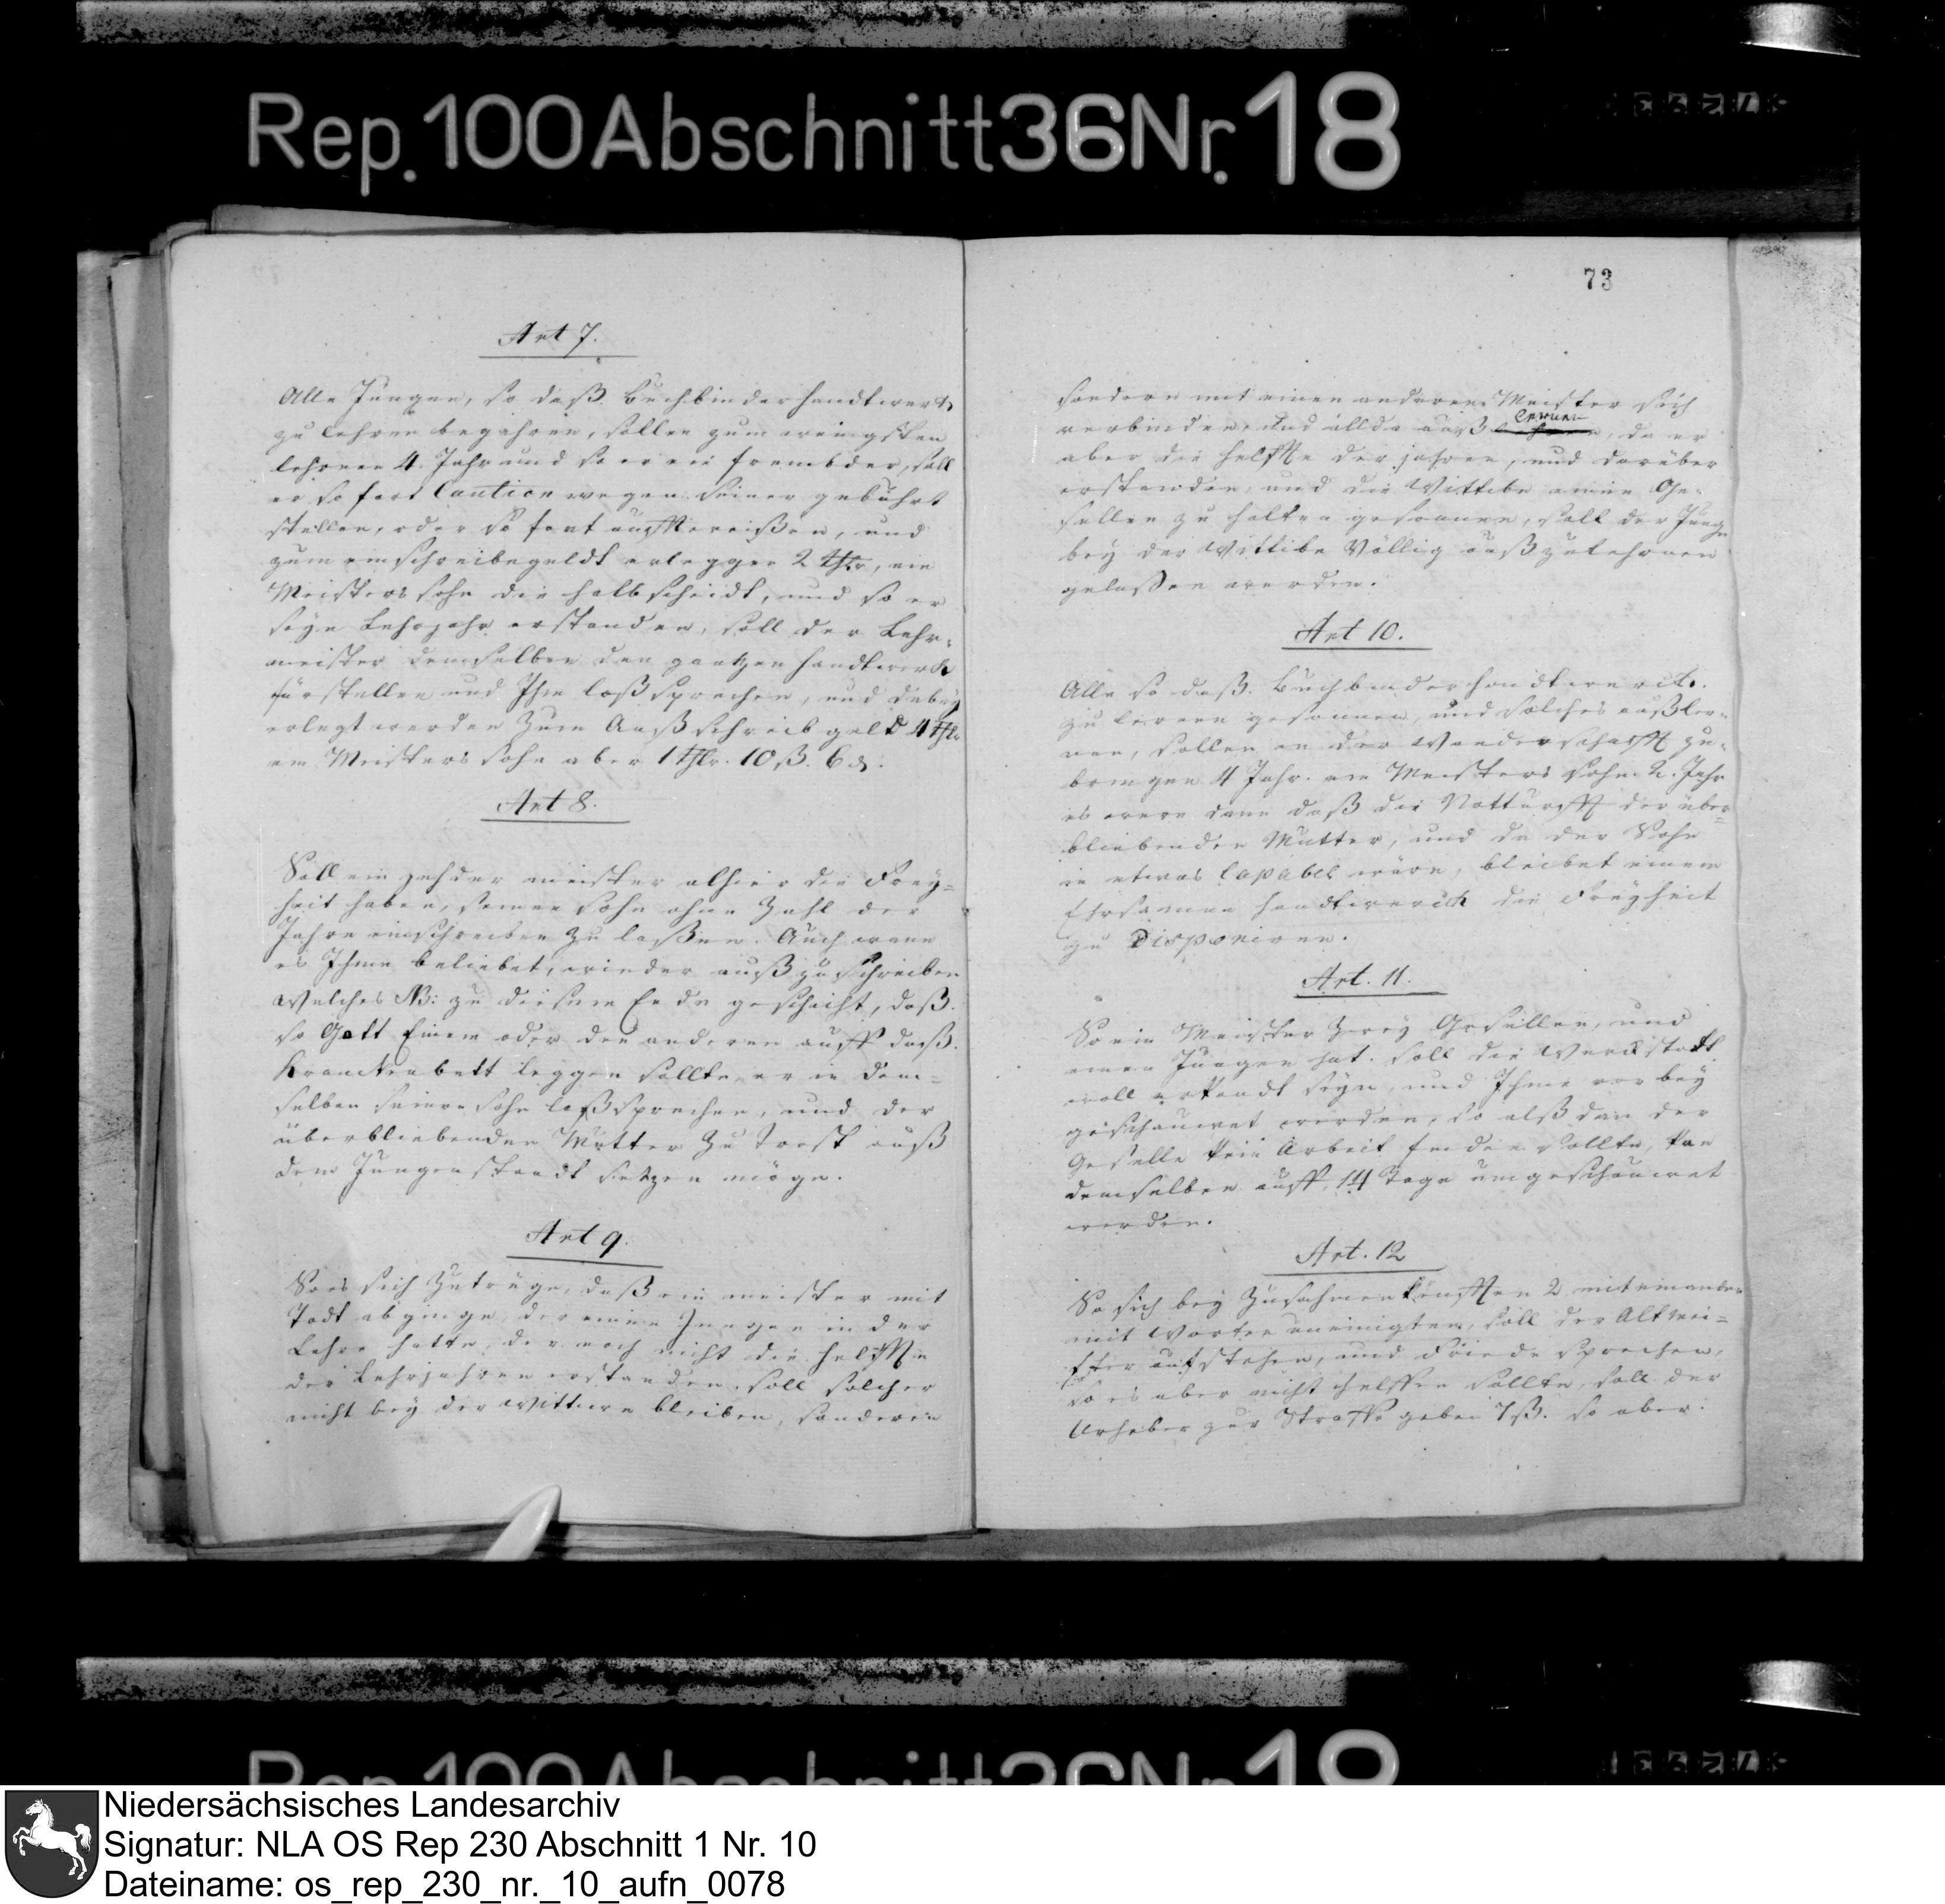 Rep. 100 Abschnitt 36 Nr. 18
Art 7.
Alle Jungen, so daß Buchbinderhandtwerck
zu lehren begehren, sollen zum weinigsten
lehrnen 4 Jahr und so er ein frembder, soll
er so fort Caution wegen seiner gebührt
stellen, oder so fort auffweißen, und
zum einschreibegeldt erleggen 2 thlr, ein
Meisters sohn die halbscheidt, und so er
seyn Lehrjahr erstanden, soll der Lehr-
meister demselben den gantzen handtwerck
fürstellen und Ihm loßsprechen, und dabey
erlegt werden Zum Außschreib geld 4 thlr
ein Meisters sohn aber 1 thlr. 10 ß. 6 d.
Art 8.
Soll ein jehder meister alhier die Frey-
heit haben, seinen sohn ohne Zahl der
Jahre einschreiben zu laßen. Auch wann
es Ihme beliebet, wieder außzuschreiben
welches NB: zu diesem Ende geschieht, daß
so Gott Einem oder den anderen auff daß
Kranckenbett leggen sollte, er in dem-
selben seinen sohn loßsprechen, und der
überbliebenden Mutter Zu trost auß
dem Jungenstandt setzen möge.
Art 9.
So es sich Zutrüge, daß ein meister mit
Todt abginge, der einen Jungen in der
Lehre hatte, der noch nicht die helffte
der Lehrjahren erstanden, soll solcher
nicht bey der Wittwen bleiben, sonderen
73
sondern mit einen anderen Meister sich
verbinden, und allda auß lernen, da er
aber die helffte der jahren, und darüber
erstanden, und die Wittibe einen Ge-
sellen zu halten gesonnen, soll der Junge
bey der Wittibe Völlig auß zulehrnen
gelaßen werden.
Art 10.
Alle so daß Buchbinderhandtwerck
zu lernen gesonnen, und solches außler-
nen, sollen an der Wanderschafft zu-
bringen 4 Jahr. ein Meisters sohn 2. Jahr
es were dann daß die Notturfft der über-
bliebenden Mutter, und da der Sohn
in etwas Capabel wäre, bleibet einem
Ehrsamen handtwerck die Freyheit
zu Disponiren.
Art. 11.
So ein Meister Zwey Gesellen, und
einen Jungen hat. soll die Werckstadt
voll erkandt seyn, und Ihme vorbey
geschauwet werden, so alß dan der
Geselle kein Arbeit finden sollte, kan
demselben auff 14 Tage umgeschauwet
werden.
Art. 12
So sich bey Zusahmenkünfften 2 miteinander
mit Worten uneinigten, soll der Altmei-
ster aufstehen, und Friede sprechen,
so es aber nicht helffen sollte, soll der
Urheber zur Straffe geben 7 ß. so aber
Rep. 100 Abschnitt 36 Nr. 18
Niedersächsisches Landesarchiv
Signatur: NLA OS Rep 230 Abschnitt 1 Nr. 10
Dateiname: os_rep_230_nr._10_aufn_0078